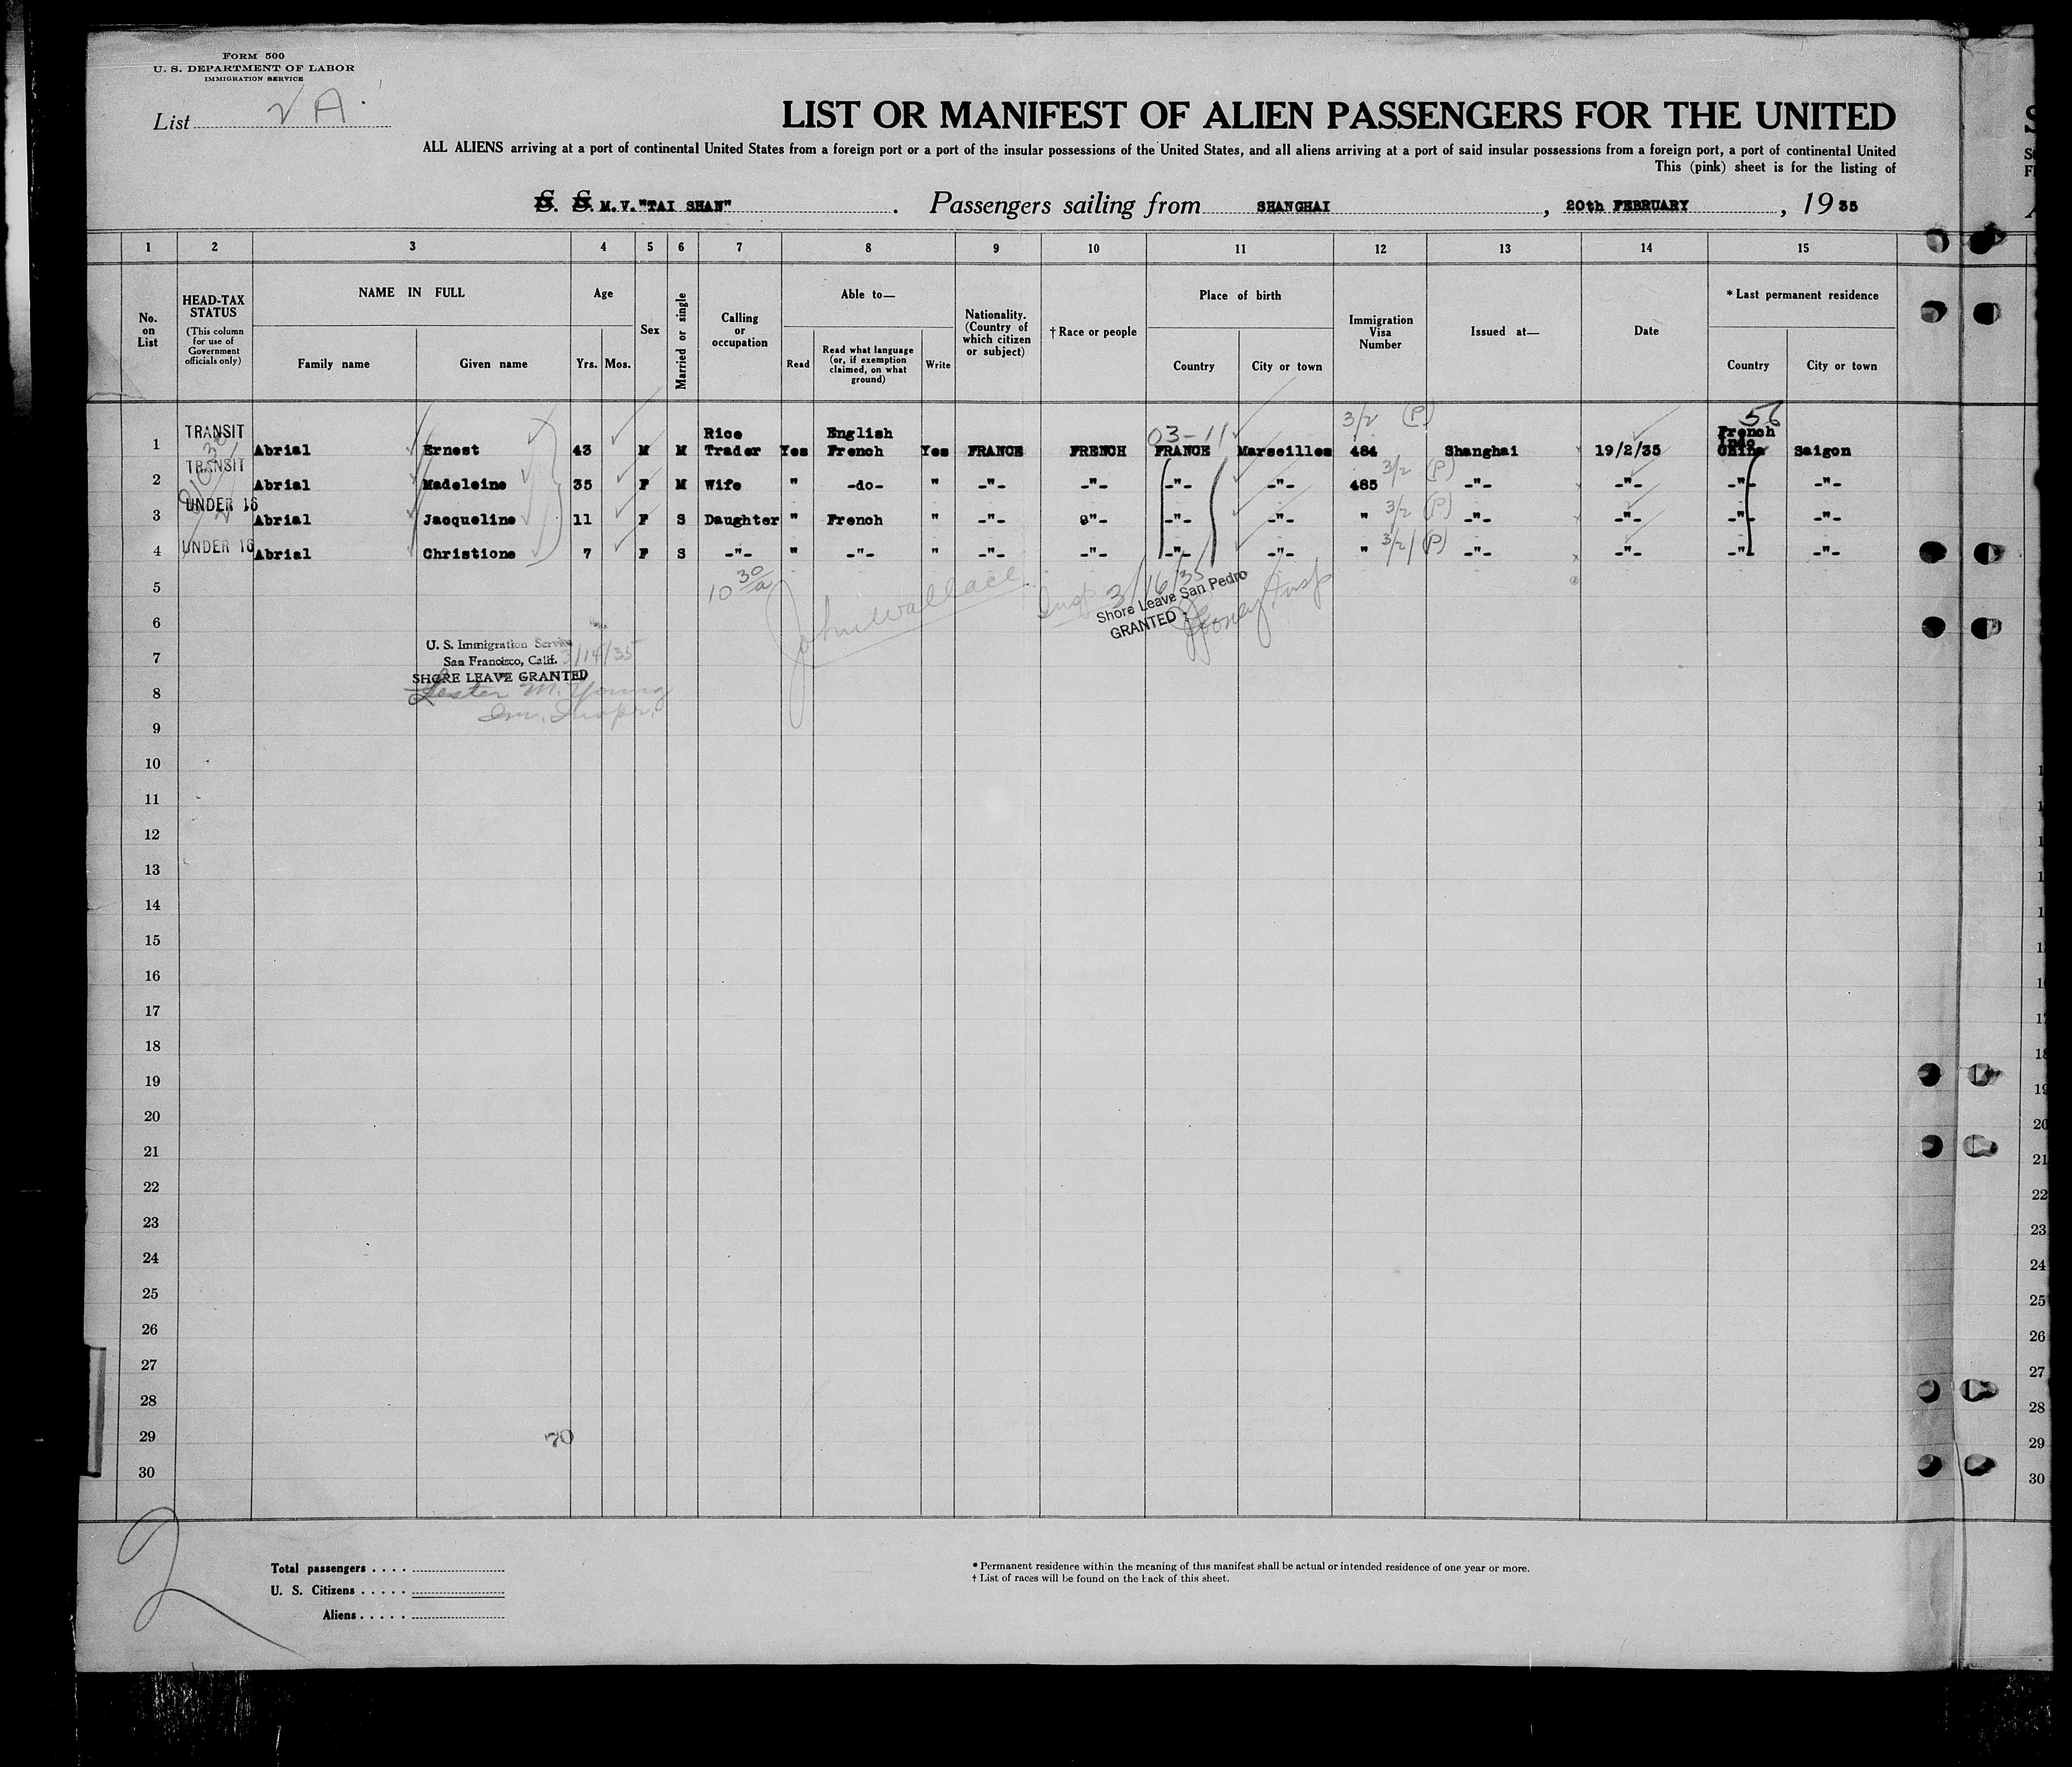 FORM 500
U. S. DEPARTMENT OF LABOR
IMMIGRATION SERVICE
List 2 A.
LIST OR MANIFEST OF ALIEN PASSENGERS FOR THE UNITED
ALL ALIENS arriving at a port of continental United States from a foreign port or a port of the insular possessions of the United States, and all aliens arriving at a port of said insular possessions from a foreign port, a port of continental United
This (pink) sheet is for the listing of
S. S. M.V."TAI SHAN". Passengers sailing from SHANGHAI, 20th FEBRUARY, 1935
1 2 3 4 5 6 7 8 9 10 11 12 13 14 15
No. on List
HEAD-TAX STATUS
(This column for use of Government officials only)
NAME IN FULL
Family name Given name
Age
Yrs. Mos.
Sex
Married or single
Calling or occupation
Able to—
Read
Read what language (or, if exemption claimed, on what ground)
Write
Nationality. (Country of which citizen or subject)
† Race or people
Place of birth
Country City or town
Immigration Visa Number
Issued at—
Date
* Last permanent residence
Country City or town
3/2 (P) 56
03-11
1 TRANSIT Abrial Ernest 43 M M Rice Trader Yes English French Yes FRANCE FRENCH FRANCE Marseilles 484 Shanghai 19/2/35 French Indo China Saigon
2 TRANSIT Abrial Madeleine 35 F M Wife " -do- " -"- -"- -"- -"- 485 3/2 (P) -"- -"- -"- -"-
3 UNDER 16 Abrial Jacqueline 11 F S Daughter " French " -"- 9"- -"- -"- " 3/2 (P) -"- -"- -"- -"-
4 UNDER 16 Abrial Christiane 7 F S -"- " -"- " -"- -"- -"- -"- " 3/2 (P) -"- -"- -"- -"-
5
10 30/a
John Wallace Insp 3/16/35
Shore Leave San Pedro
GRANTED
Insp
6
U. S. Immigration Service
7
San Francisco, Calif. 3/14/35
SHORE LEAVE GRANTED
8
Lester M. Young
Im. Inspr.
9
10
11
12
13
14
15
16
17
18
19
20
21
22
23
24
25
26
27
28
29
70
30
2
Total passengers . . . .
U. S. Citizens . . . . .
Aliens . . . . .
* Permanent residence within the meaning of this manifest shall be actual or intended residence of one year or more.
† List of races will be found on the back of this sheet.